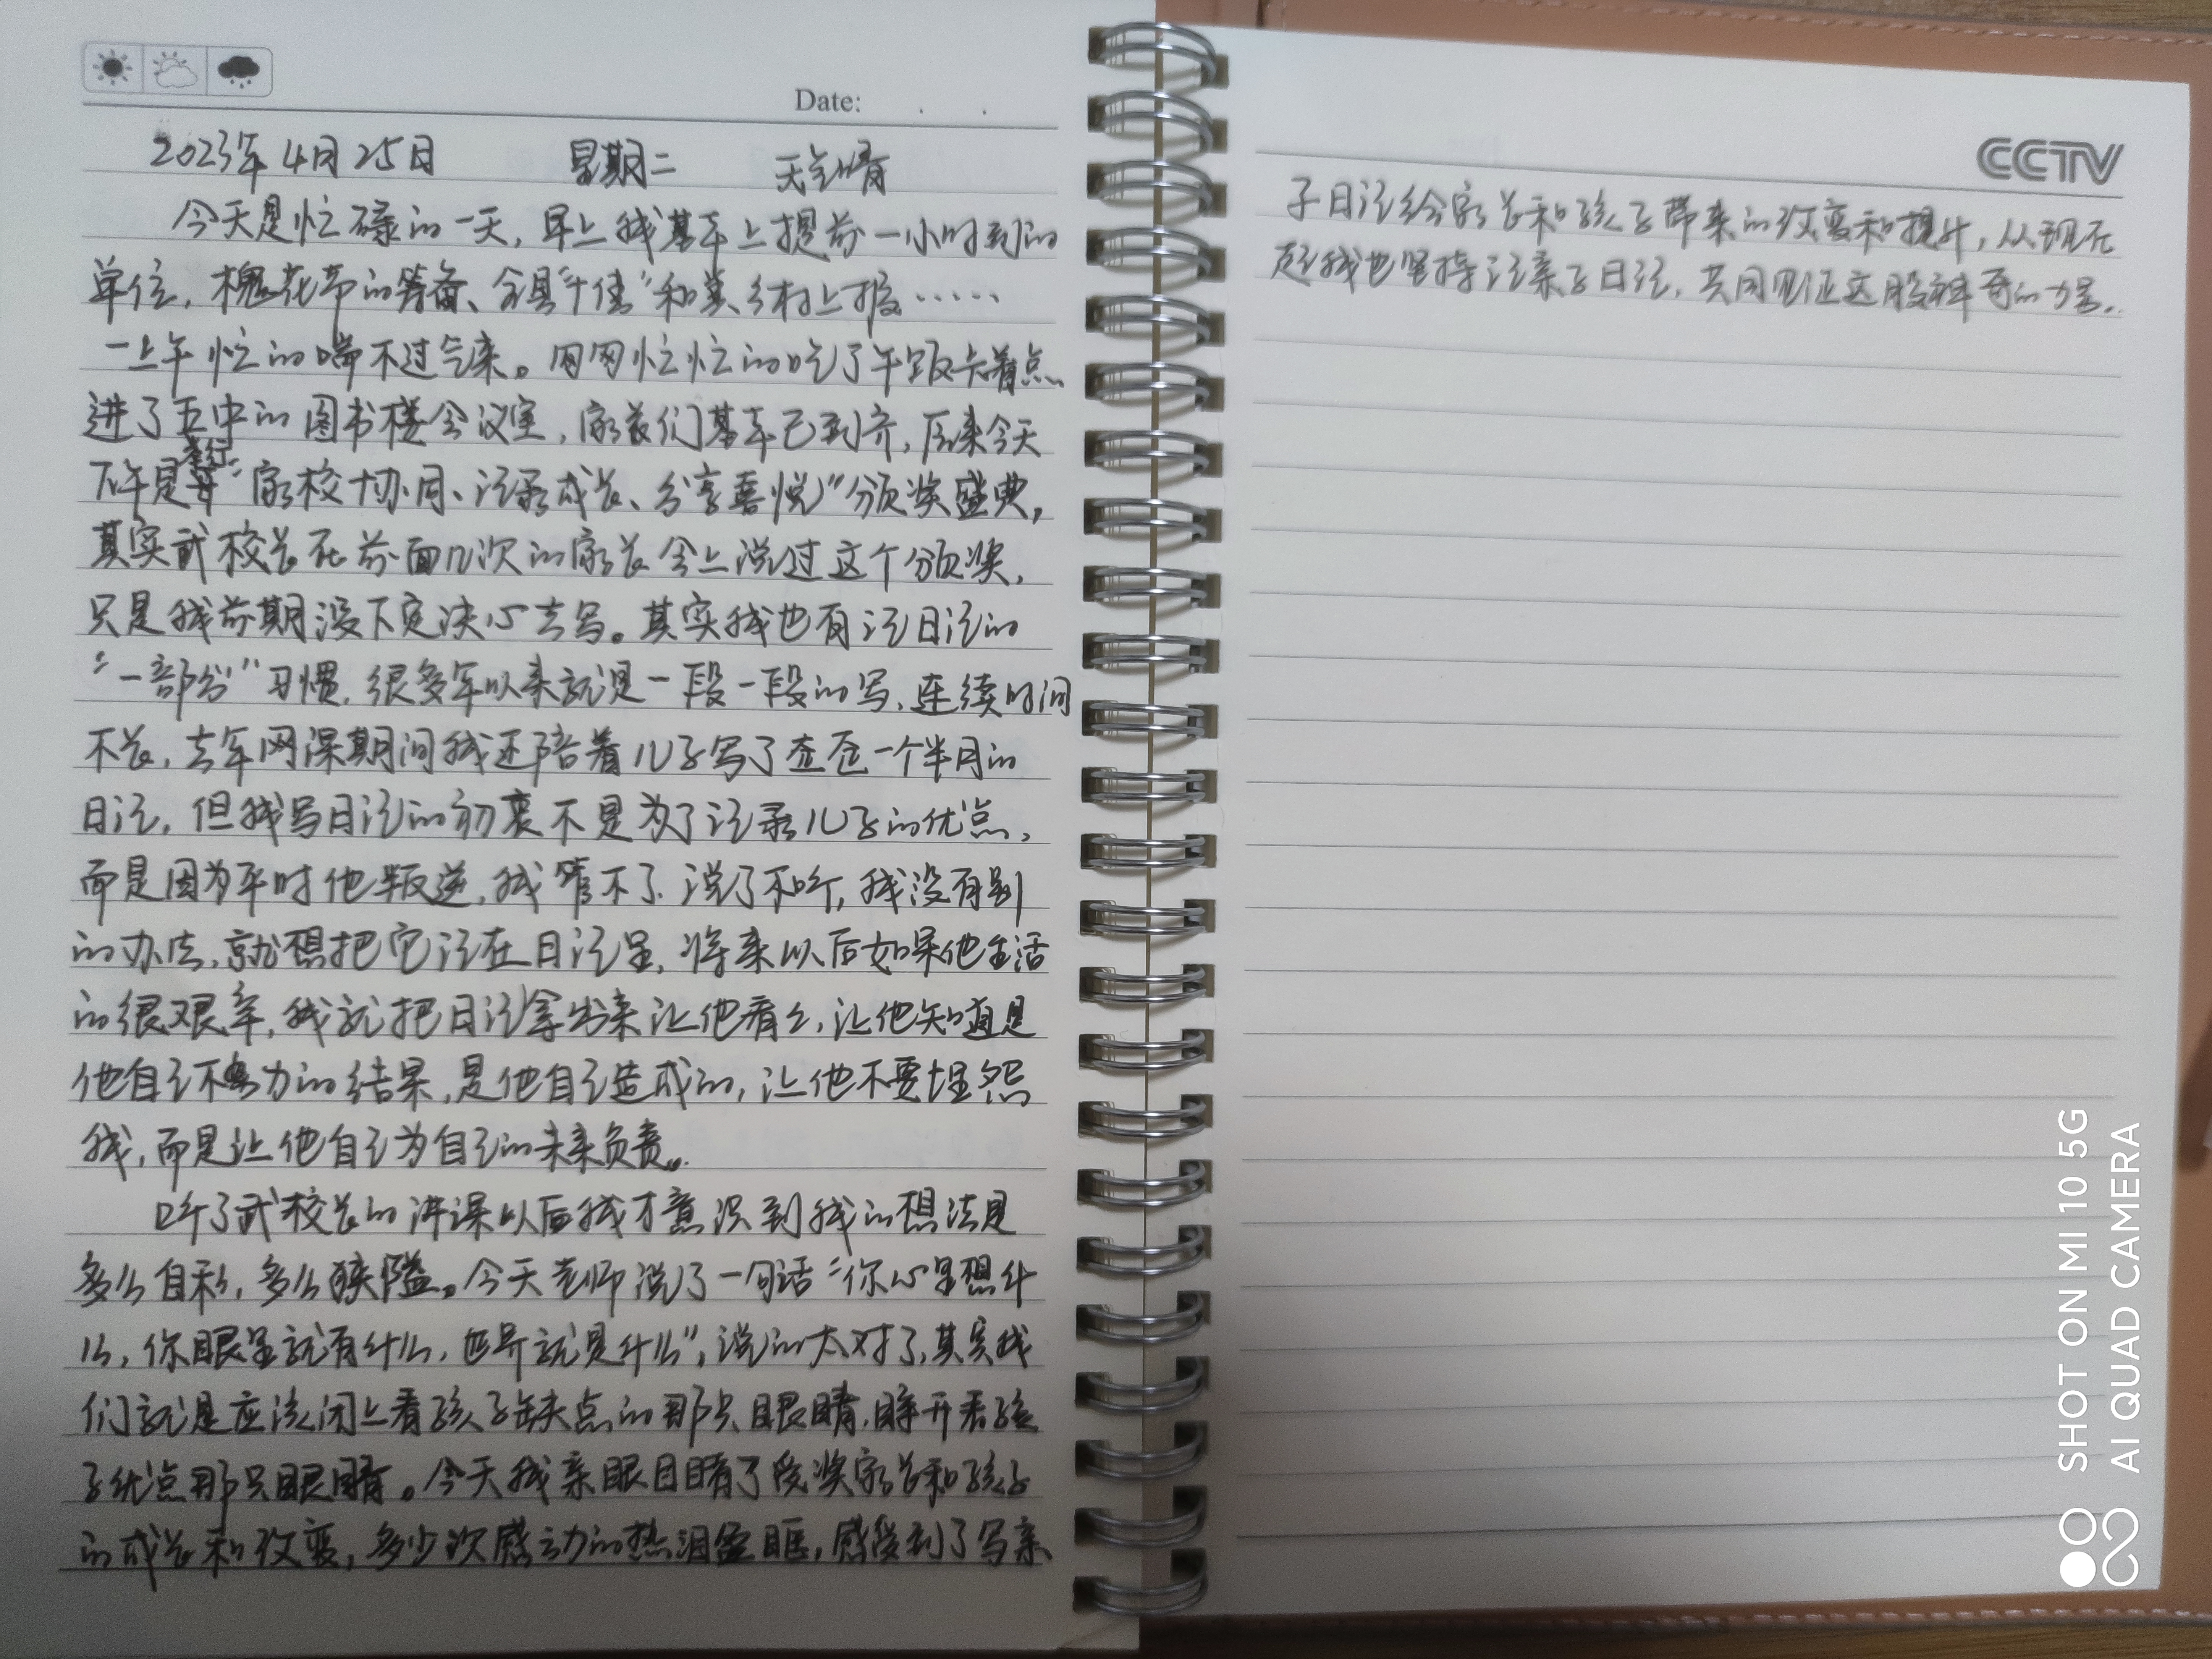 Date: . .
2023年4月25日 星期二 天气晴
今天是忙碌的一天,早上我基本上提前一小时到的
单位,槐花节的筹备、全县"十佳"和美乡村上报……
一上午忙的喘不过气来。匆匆忙忙的吃了午饭卡着点
进了五中的图书楼会议室,家长们基本已到齐,原来今天
下午是举行"家校协同、记录成长、分享喜悦"颁奖盛典,
其实武校长在前面几次的家长会上说过这个颁奖,
只是我前期没下定决心去写。其实我也有记日记的
"一部分"习惯,很多年以来就是一段一段的写,连续时间
不长,去年网课期间我还陪着儿子写了整整一个半月的
日记,但我写日记的初衷不是为了记录儿子的优点,
而是因为平时他叛逆,我管不了,说了不听,我没有别
的办法,就想把它记在日记里,将来以后如果他生活
的很艰辛,我就把日记拿出来让他看看,让他知道是
他自己不努力的结果,是他自己造成的,让他不要埋怨
我,而是让他自己为自己的未来负责。
听了武校长的讲课以后我才意识到我的想法是
多么自私,多么狭隘。今天老师说了一句话"你心里想什
么,你眼里就有什么,世界就是什么",说的太对了,其实我
们就是应该闭上看孩子缺点的那只眼睛,睁开看孩
子优点那只眼睛。今天我亲眼目睹了受奖家长和孩子
的成长和改变,多少次感动的热泪盈眶,感受到了写亲
CCTV
子日记给家长和孩子带来的改变和提升,从现在
起我也坚持记亲子日记,共同见证这股神奇的力量。
SHOT ON MI 10 5G
AI QUAD CAMERA